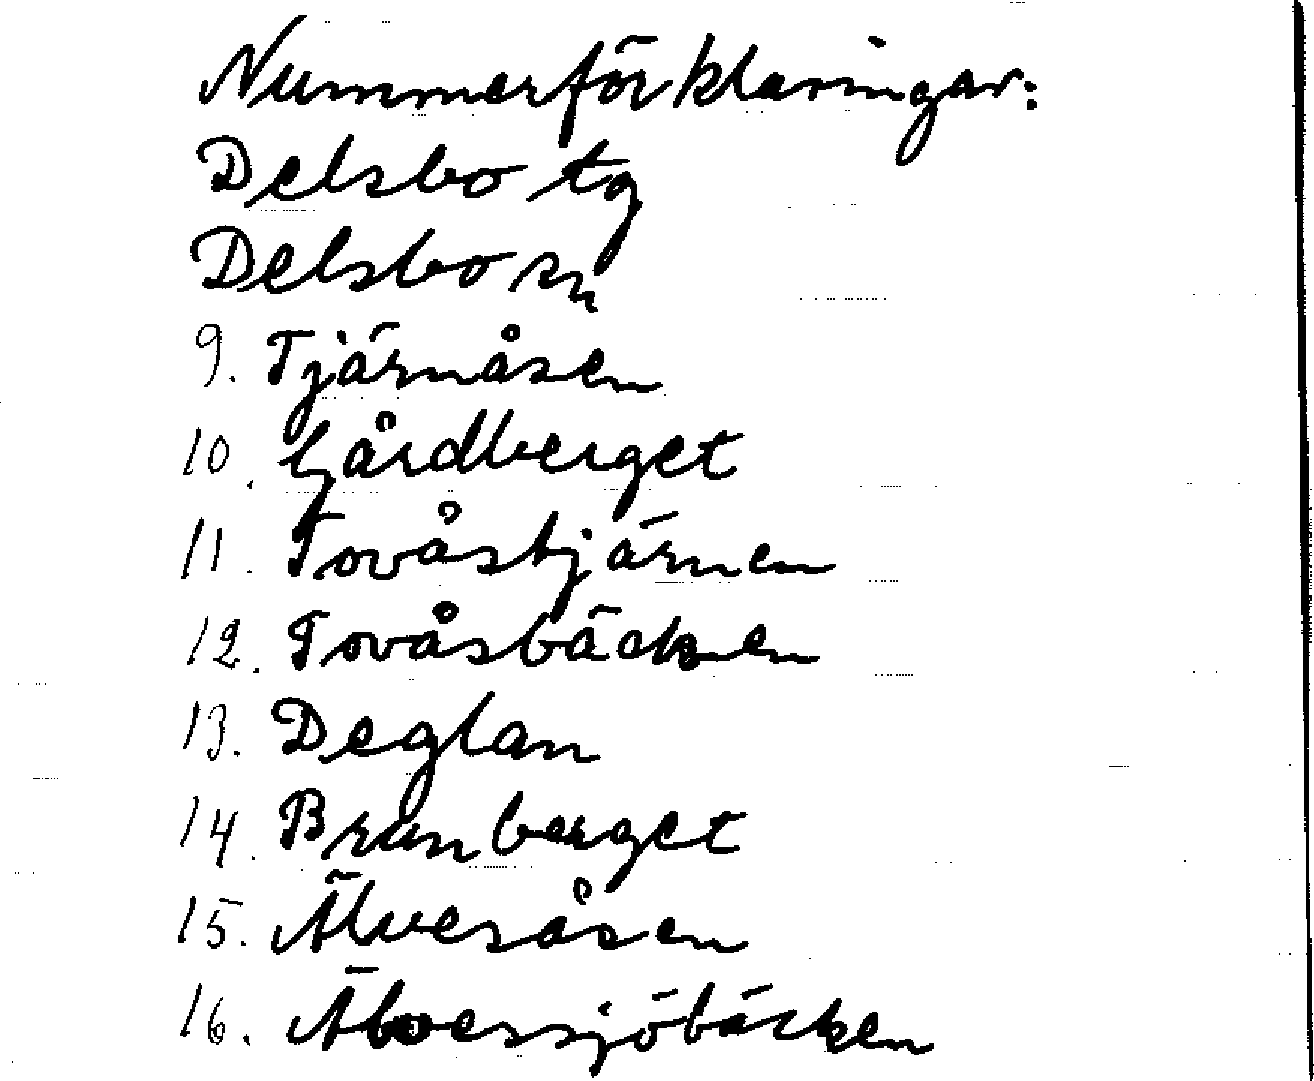 Nummerförklaringar:
Delsbo tg
Delsbo sn
9. Tjärnåsen
10. Gårdberget
11. Tovåstjärnen
12. Tovåsbäcken
13. Deglan
14. Brunberget
15. Älvesåsen
16. Älvessjöbäcken